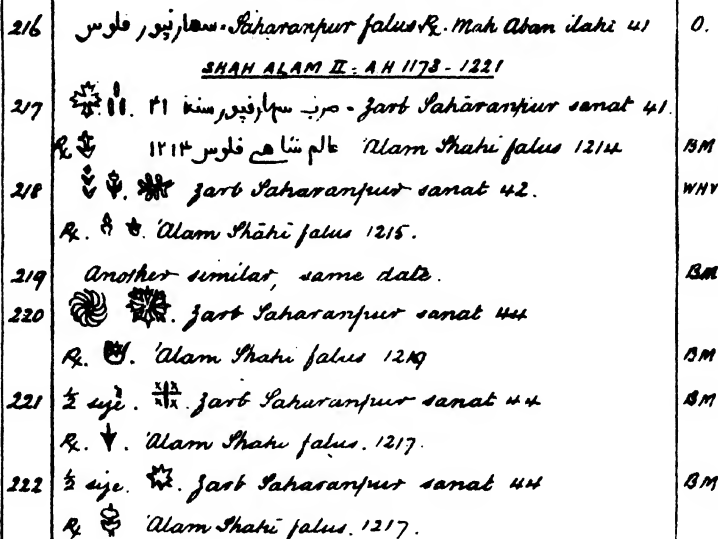 216 سهارنپور فلوس. Saharanpur falus Rx. Mah Aban ilahi 41 O.
SHAH ALAM II: AH 1173 - 1221
217 ضرب سهارنپور سنة ٤١ - Zarb Sahāranpur sanat 41.
Rx عالم شاهي فلوس ١٢١٤ 'Alam Shahi falus 1214 BM
218 Zarb Saharanpur sanat 42. WHV
Rx. 'Alam Shāhi falus 1215.
219 Another similar, same date. BM
220 Zarb Saharanpur sanat 44
Rx. 'Alam Shahi falus BM
221 ½ size. Zarb Saharanpur sanat 44 BM
Rx. 'Alam Shahi falus. 1217.
222 ½ size. Zarb Saharanpur sanat 44 BM
Rx 'Alam Shahi falus. 1217.